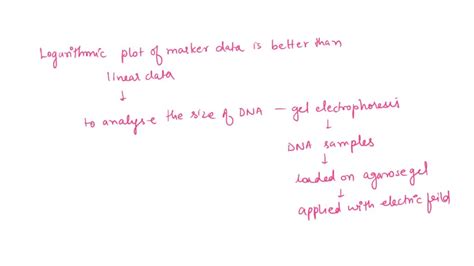 Logarithmic plot of marker data is better than
linear data
↓
to analyse the size of DNA — gel electrophoresis
↓
DNA samples
↓
loaded on agarose gel
↓
applied with electric feild